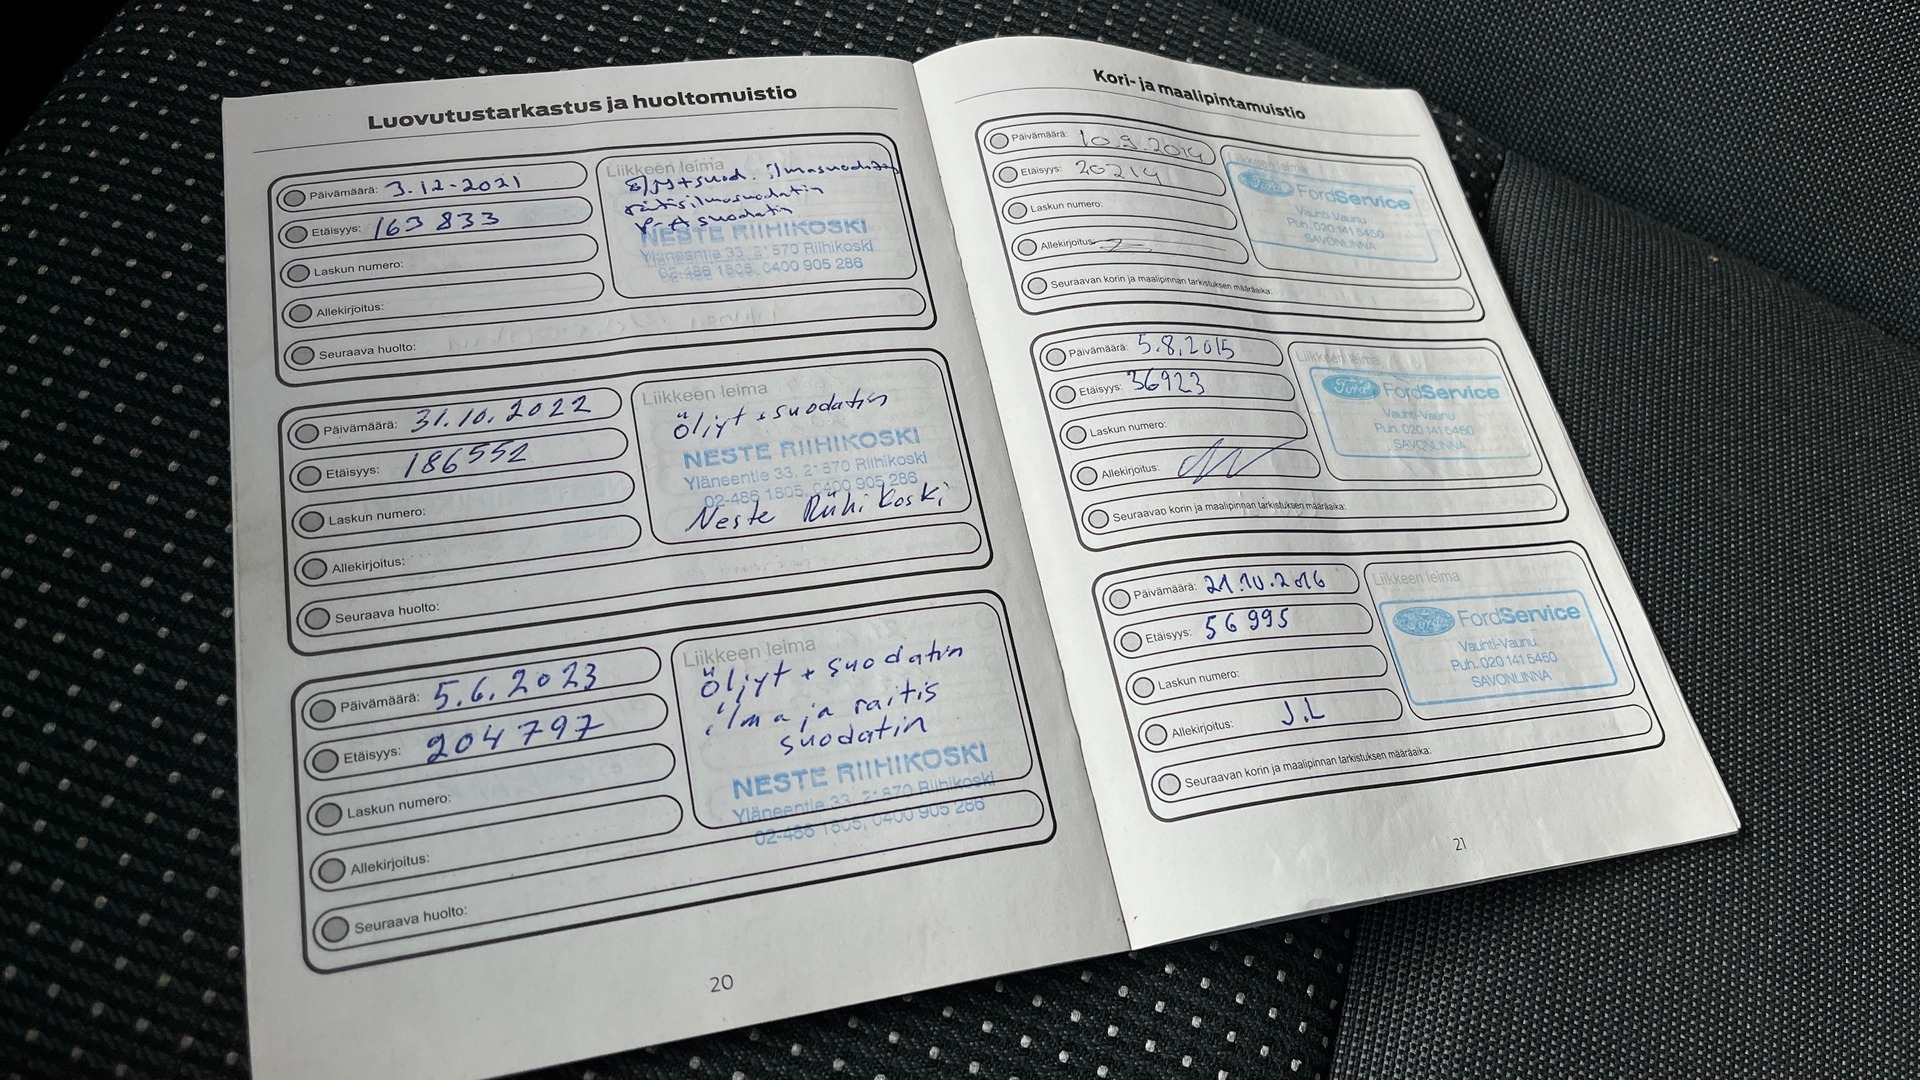 Luovutustarkastus ja huoltomuistio
Päivämäärä: 3.12-2021
Etäisyys: 163 833
Laskun numero:
Allekirjoitus:
Seuraava huolto:
Liikkeen leima
ilmasuodatin
raitisilmasuodatin
suodatin
NESTE RIIHIKOSKI
Yläneentie 33, 21870 Riihikoski
02-486 1805, 0400 905 286
Päivämäärä: 31.10.2022
Etäisyys: 186552
Laskun numero:
Allekirjoitus:
Seuraava huolto:
Liikkeen leima
Öljyt + suodatin
NESTE RIIHIKOSKI
Yläneentie 33, 21870 Riihikoski
02-486 1805, 0400 905 286
Neste Riihikoski
Päivämäärä: 5.6.2023
Etäisyys: 204797
Laskun numero:
Allekirjoitus:
Seuraava huolto:
Liikkeen leima
Öljyt + suodatin
ilma ja raitis
suodatin
NESTE RIIHIKOSKI
Yläneentie 33, 21870 Riihikoski
02-486 1805, 0400 905 286
20
Kori- ja maalipintamuistio
Päivämäärä: 10.9.2014
Etäisyys: 20214
Laskun numero:
Allekirjoitus:
Seuraavan korin ja maalipinnan tarkistuksen määräaika:
Liikkeen leima
Ford FordService
Vauhti-Vaunu
Puh. 020 141 5450
SAVONLINNA
Päivämäärä: 5.8.2015
Etäisyys: 36923
Laskun numero:
Allekirjoitus:
Seuraavan korin ja maalipinnan tarkistuksen määräaika:
Liikkeen leima
Ford FordService
Vauhti-Vaunu
Puh. 020 141 5450
SAVONLINNA
Päivämäärä: 21.10.2016
Etäisyys: 56995
Laskun numero:
Allekirjoitus: J.L
Seuraavan korin ja maalipinnan tarkistuksen määräaika:
Liikkeen leima
Ford FordService
Vauhti-Vaunu
Puh. 020 141 5450
SAVONLINNA
21